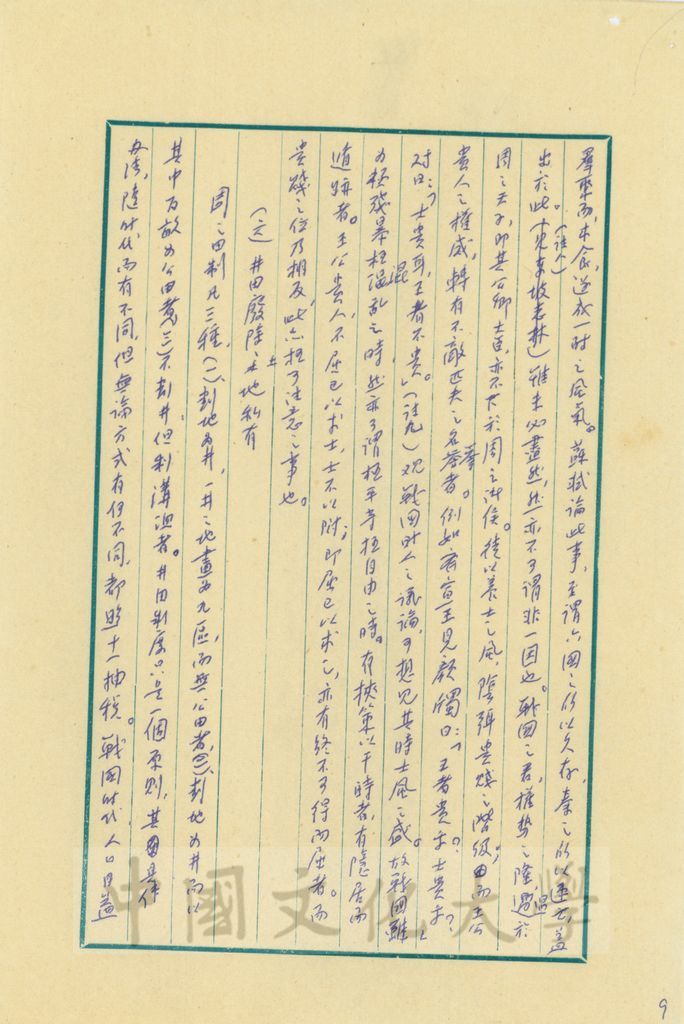 羣聚而,木食,遂成一時之風氣。蘇軾論此事,至謂六國之所以久存,秦之所以速亡,蓋
出於此。(註八)(見東坡志林)雖未必盡然,然亦不可謂非一因也。戰國之君,權勢之隆,過於
周之天子,即其公卿大臣,亦不下於周之諸侯。徒以養士之風,陰弭貴賤之階級;由而王公
貴人之權威,轉有不敵匹夫之名譽者。例如齊宣王見顏斶曰:「王者貴乎?士貴乎?」
對曰:「士貴耳,王者不貴。」(註九)观戰國時人之議論,可想見其時士風之盛。故戰國雖
为極殘暴極混乱之時,然亦可谓極平等極自由之時。有挾策以干時者,有隱居而
遁跡者。王公貴人,不屈己以求士,士不以附;即屈己以求之,亦有終不可得而屈者。而
贵賤之位乃相反,此亦極可注意之事也。
(六)井田廢除土地私有
周之田制凡三種,(一)划地为井,一井之地畫为九區,而無公田者;(二)划地为井而以
其中百畝为公田者;(三)不划井但制溝洫者。井田制度只是一個原則,其具体
办法,隨时代而有不同,但無論方式有何不同,都照十一抽税。戰国时代,人口日益
中國文化大學
9